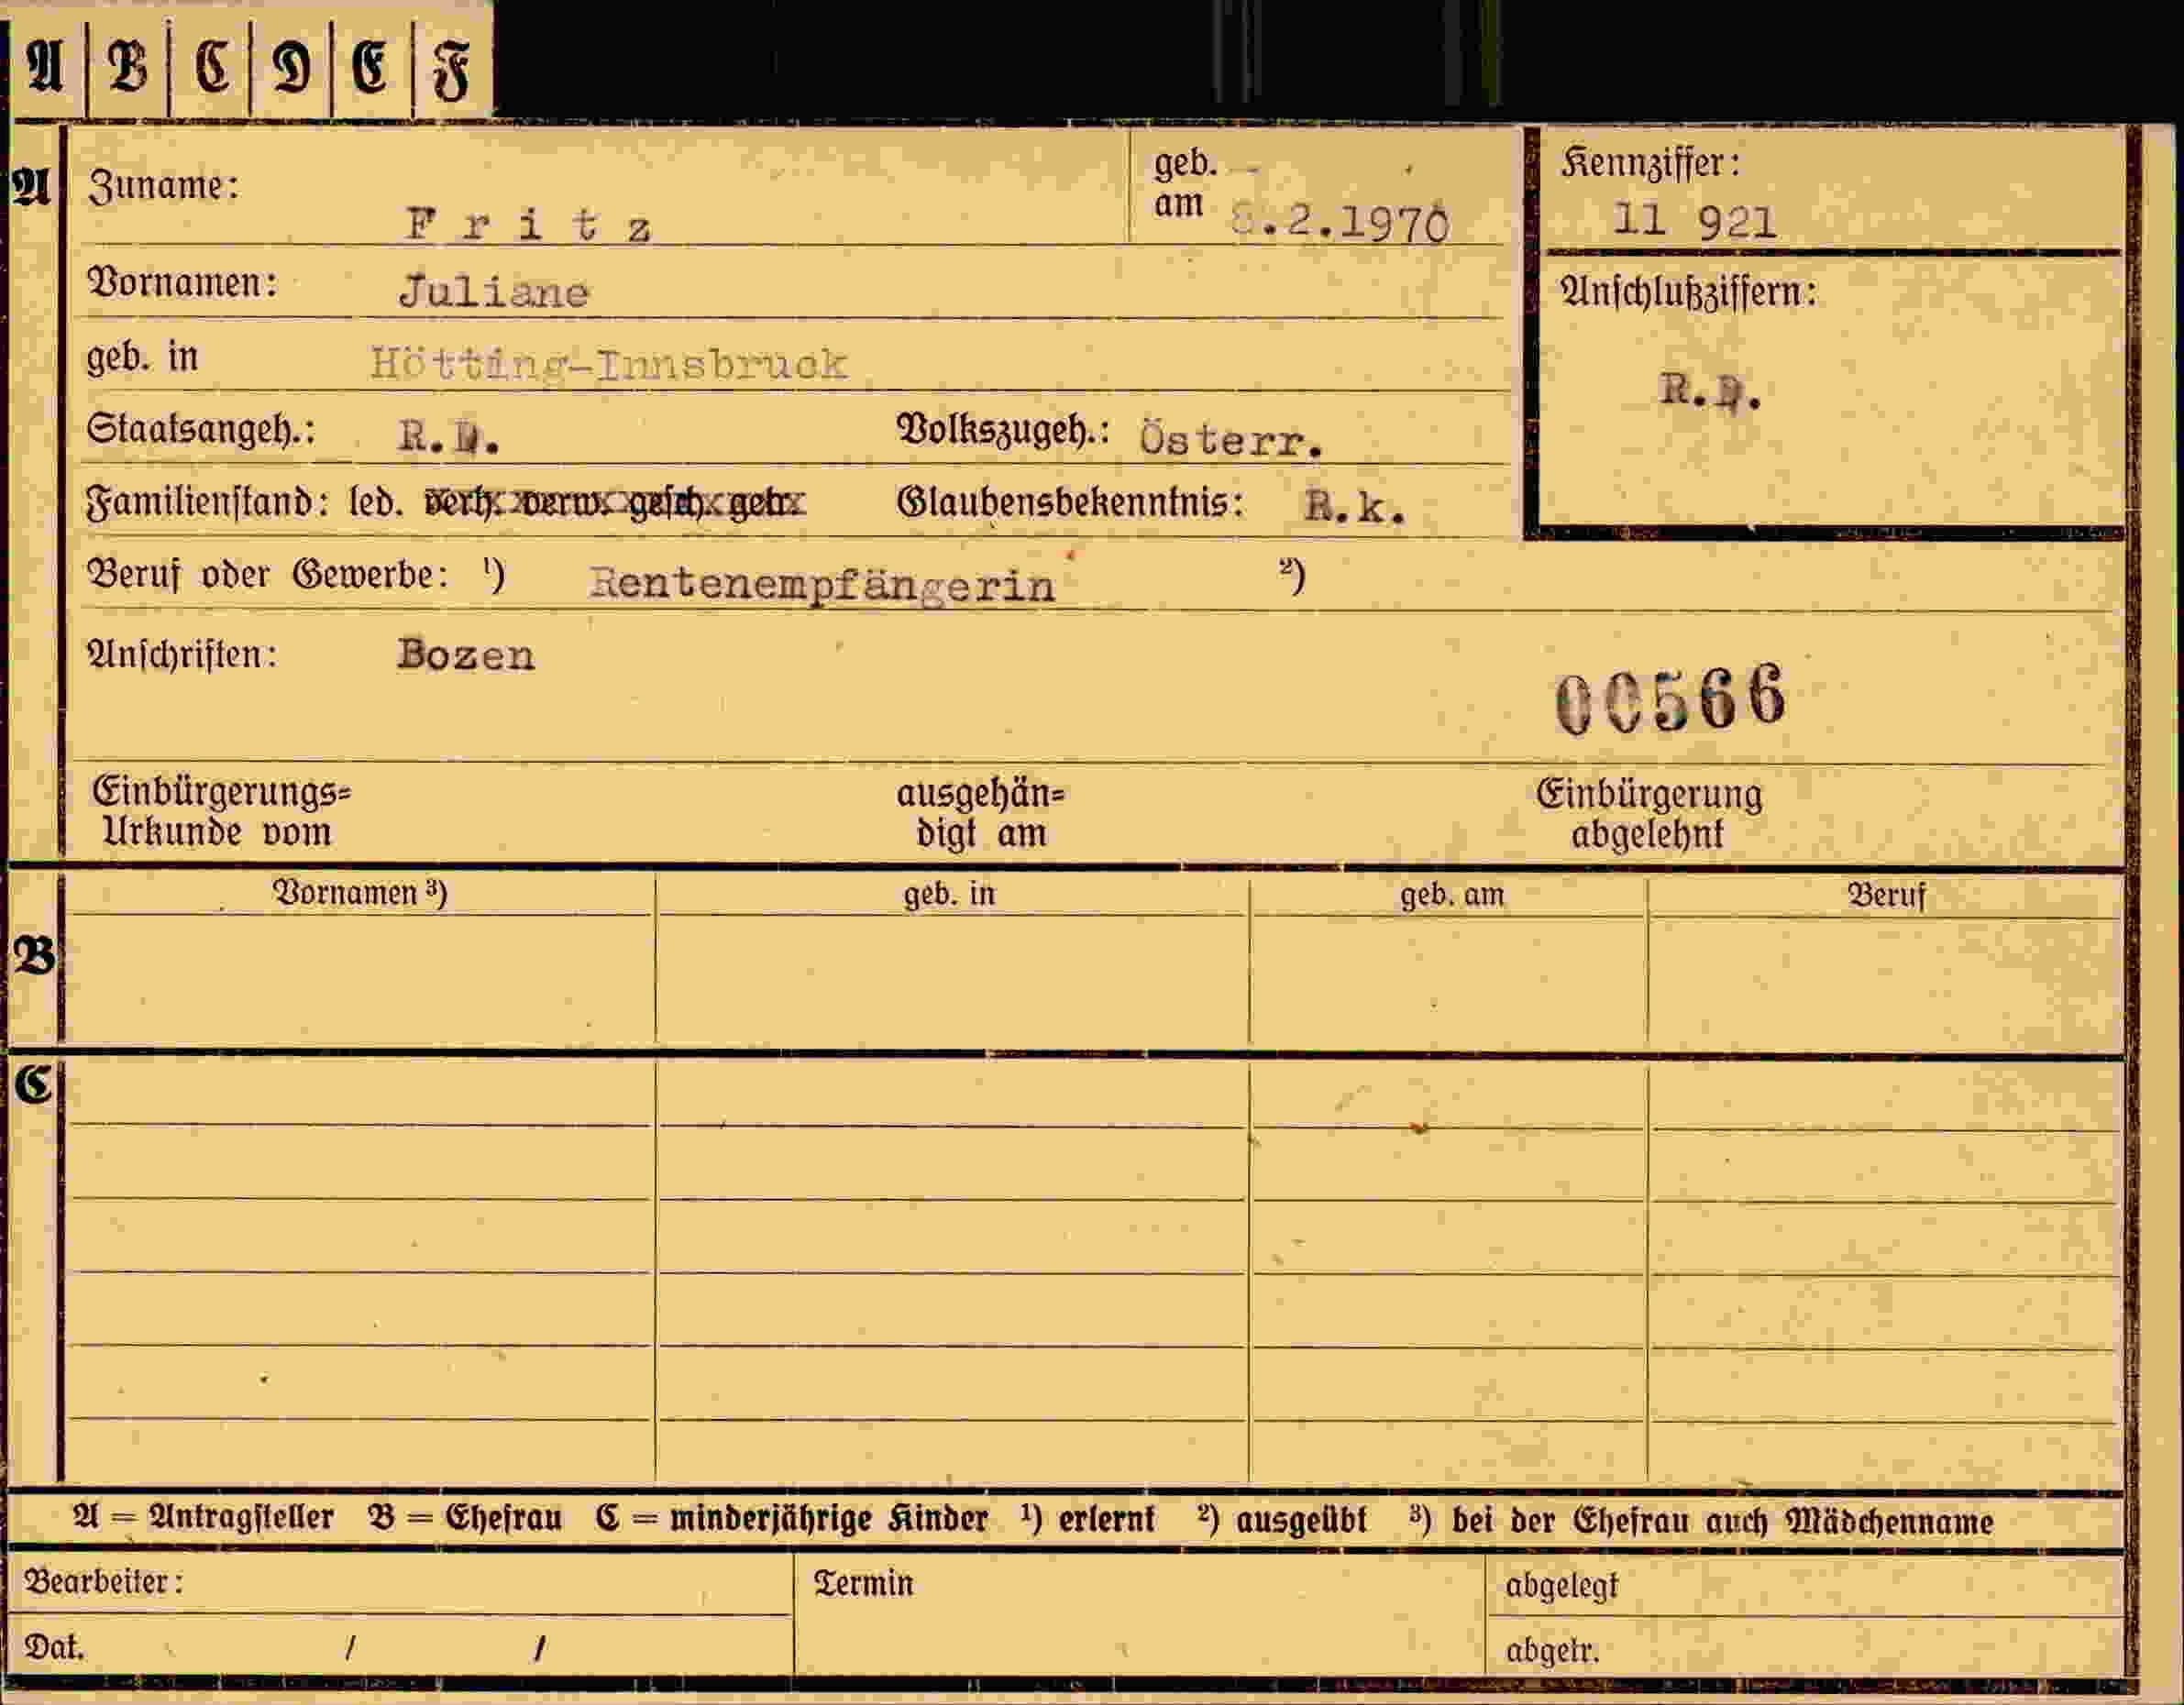 A B C D E F
A
Zuname: Fritz
geb. am 8.2.1970
Kennziffer: 11 921
Vornamen: Juliane
Anschlußziffern: R.D.
geb. in Hötting-Innsbruck
Staatsangeh.: R.D. Volkszugeh.: Österr.
Familienstand: led. verh. verw. gesch. getr. Glaubensbekenntnis: R.k.
Beruf oder Gewerbe: ¹) Rentenempfängerin ²)
Anschriften: Bozen
00566
Einbürgerungs=
Urkunde vom
ausgehän=
digt am
Einbürgerung
abgelehnt
Vornamen ³) geb. in geb. am Beruf
B
C
A = Antragsteller B = Ehefrau C = minderjährige Kinder ¹) erlernt ²) ausgeübt ³) bei der Ehefrau auch Mädchenname
Bearbeiter: Termin abgelegt
Dat. / / abgetr.